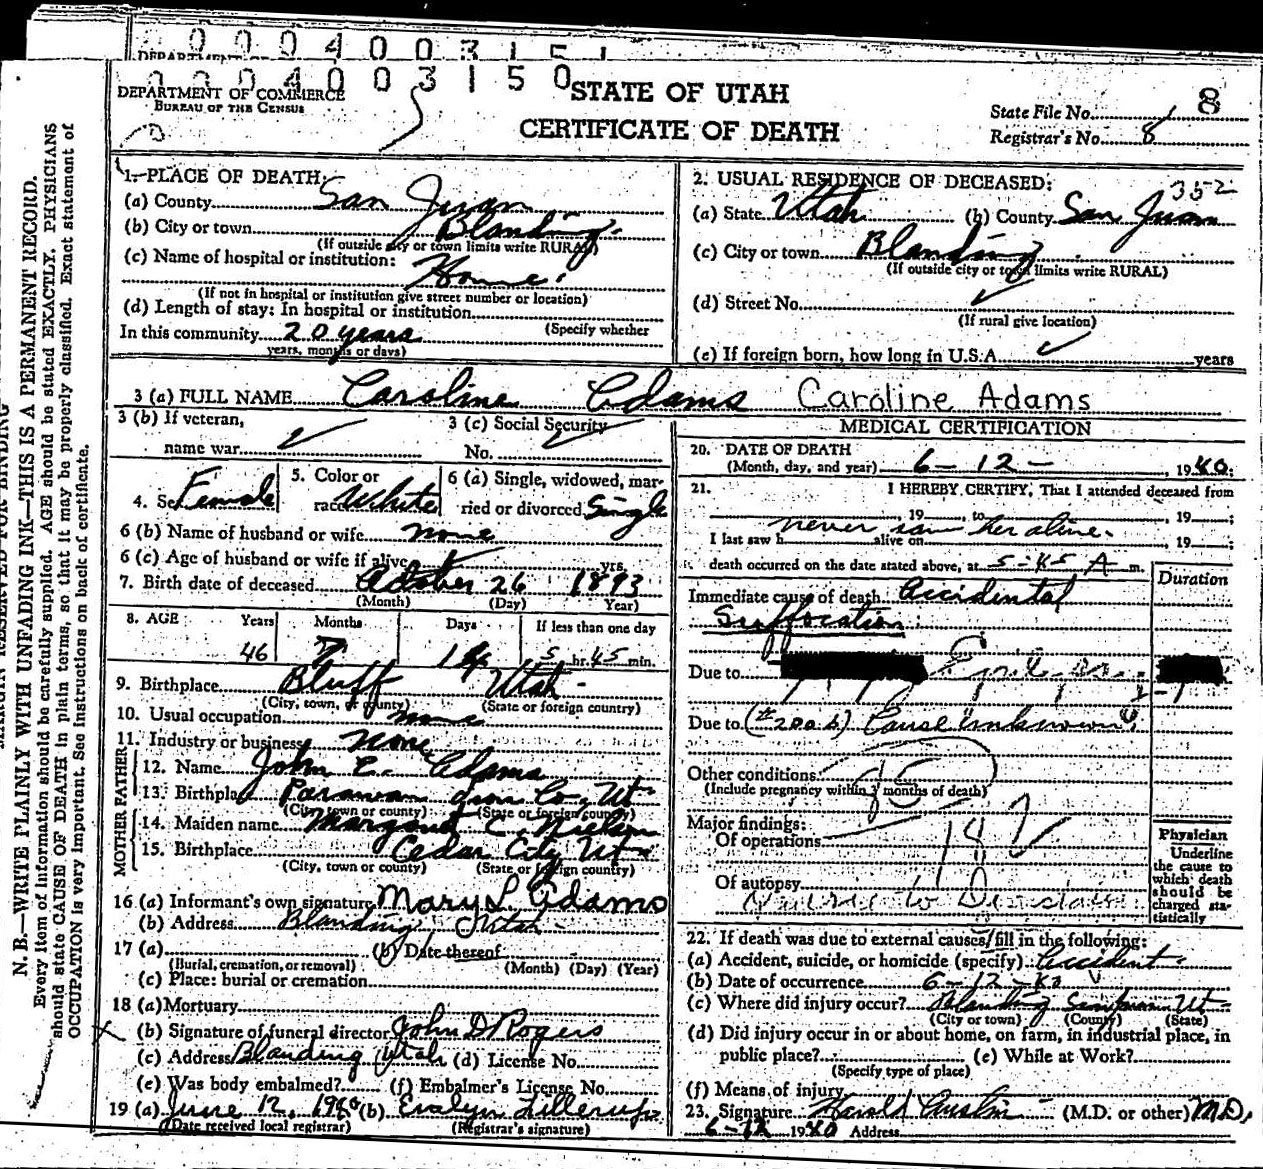 0004003151
DEPARTMENT OF
0004003150
DEPARTMENT OF COMMERCE
BUREAU OF THE CENSUS
STATE OF UTAH
CERTIFICATE OF DEATH
8
State File No.
Registrar's No. 8
N. B.—WRITE PLAINLY WITH UNFADING INK—THIS IS A PERMANENT RECORD.
Every item of information should be carefully supplied. AGE should be stated EXACTLY. PHYSICIANS
should state CAUSE OF DEATH in plain terms, so that it may be properly classified. Exact statement of
OCCUPATION is very important. See instructions on back of certificate.
1. PLACE OF DEATH:
(a) County San Juan
(b) City or town Blanding
(If outside city or town limits write RURAL)
(c) Name of hospital or institution:
Home
(If not in hospital or institution give street number or location)
(d) Length of stay: In hospital or institution
In this community 20 years (Specify whether
years, months or days)
2. USUAL RESIDENCE OF DECEASED:
352
(a) State Utah (b) County San Juan
(c) City or town Blanding
(If outside city or town limits write RURAL)
(d) Street No.
(If rural give location)
(e) If foreign born, how long in U.S.A. years
3 (a) FULL NAME Caroline Adams Caroline Adams
3 (b) If veteran,
name war
3 (c) Social Security
No.
4. Sex Female
5. Color or
race White
6 (a) Single, widowed, mar-
ried or divorced Single
6 (b) Name of husband or wife none
6 (c) Age of husband or wife if alive yrs.
7. Birth date of deceased October 26 1893
(Month) (Day) Year)
8. AGE Years Months Days If less than one day
46 7 5 hr. 45 min.
9. Birthplace Bluff Utah
(City, town, or county) (State or foreign country)
10. Usual occupation none
11. Industry or business none
FATHER
12. Name John E. Adams
13. Birthplace Parowan Iron Co, Ut
(City, town or county) (State or foreign country)
MOTHER
14. Maiden name Margaret C. Nielson
15. Birthplace Cedar City Ut
(City, town or county) (State or foreign country)
16 (a) Informant's own signature Mary L Adams
(b) Address Blanding, Utah
17 (a) (b) Date thereof
(Burial, cremation, or removal) (Month) (Day) (Year)
(c) Place: burial or cremation
18 (a) Mortuary
(b) Signature of funeral director John D Rogers
(c) Address Blanding Utah (d) License No.
(e) Was body embalmed? (f) Embalmer's License No.
19 (a) June 12, 1940 (b) Evalyn Lillerup
(Date received local registrar) (Registrar's signature)
MEDICAL CERTIFICATION
20. DATE OF DEATH
(Month, day, and year) 6-12- , 1940.
21. I HEREBY CERTIFY, That I attended deceased from
, 19 to , 19 ;
never saw her alive.
I last saw h alive on , 19 ;
death occurred on the date stated above, at 5-45 A m.
Duration
Immediate cause of death Accidental
Suffocation
Due to Epilepsy
Due to (#200.b) Cause "unknown"
Other conditions
(Include pregnancy within 3 months of death)
Major findings:
Of operations
Of autopsy
Physician
Underline
the cause to
which death
should be
charged sta-
tistically
22. If death was due to external causes, fill in the following:
(a) Accident, suicide, or homicide (specify) Accident
(b) Date of occurrence 6-12-40
(c) Where did injury occur? Blanding San Juan Ut
(City or town) (County) (State)
(d) Did injury occur in or about home, on farm, in industrial place, in
public place? (e) While at Work?
(Specify type of place)
(f) Means of injury
23. Signature Harold Austin (M.D. or other) M.D.
6-12 1940 Address